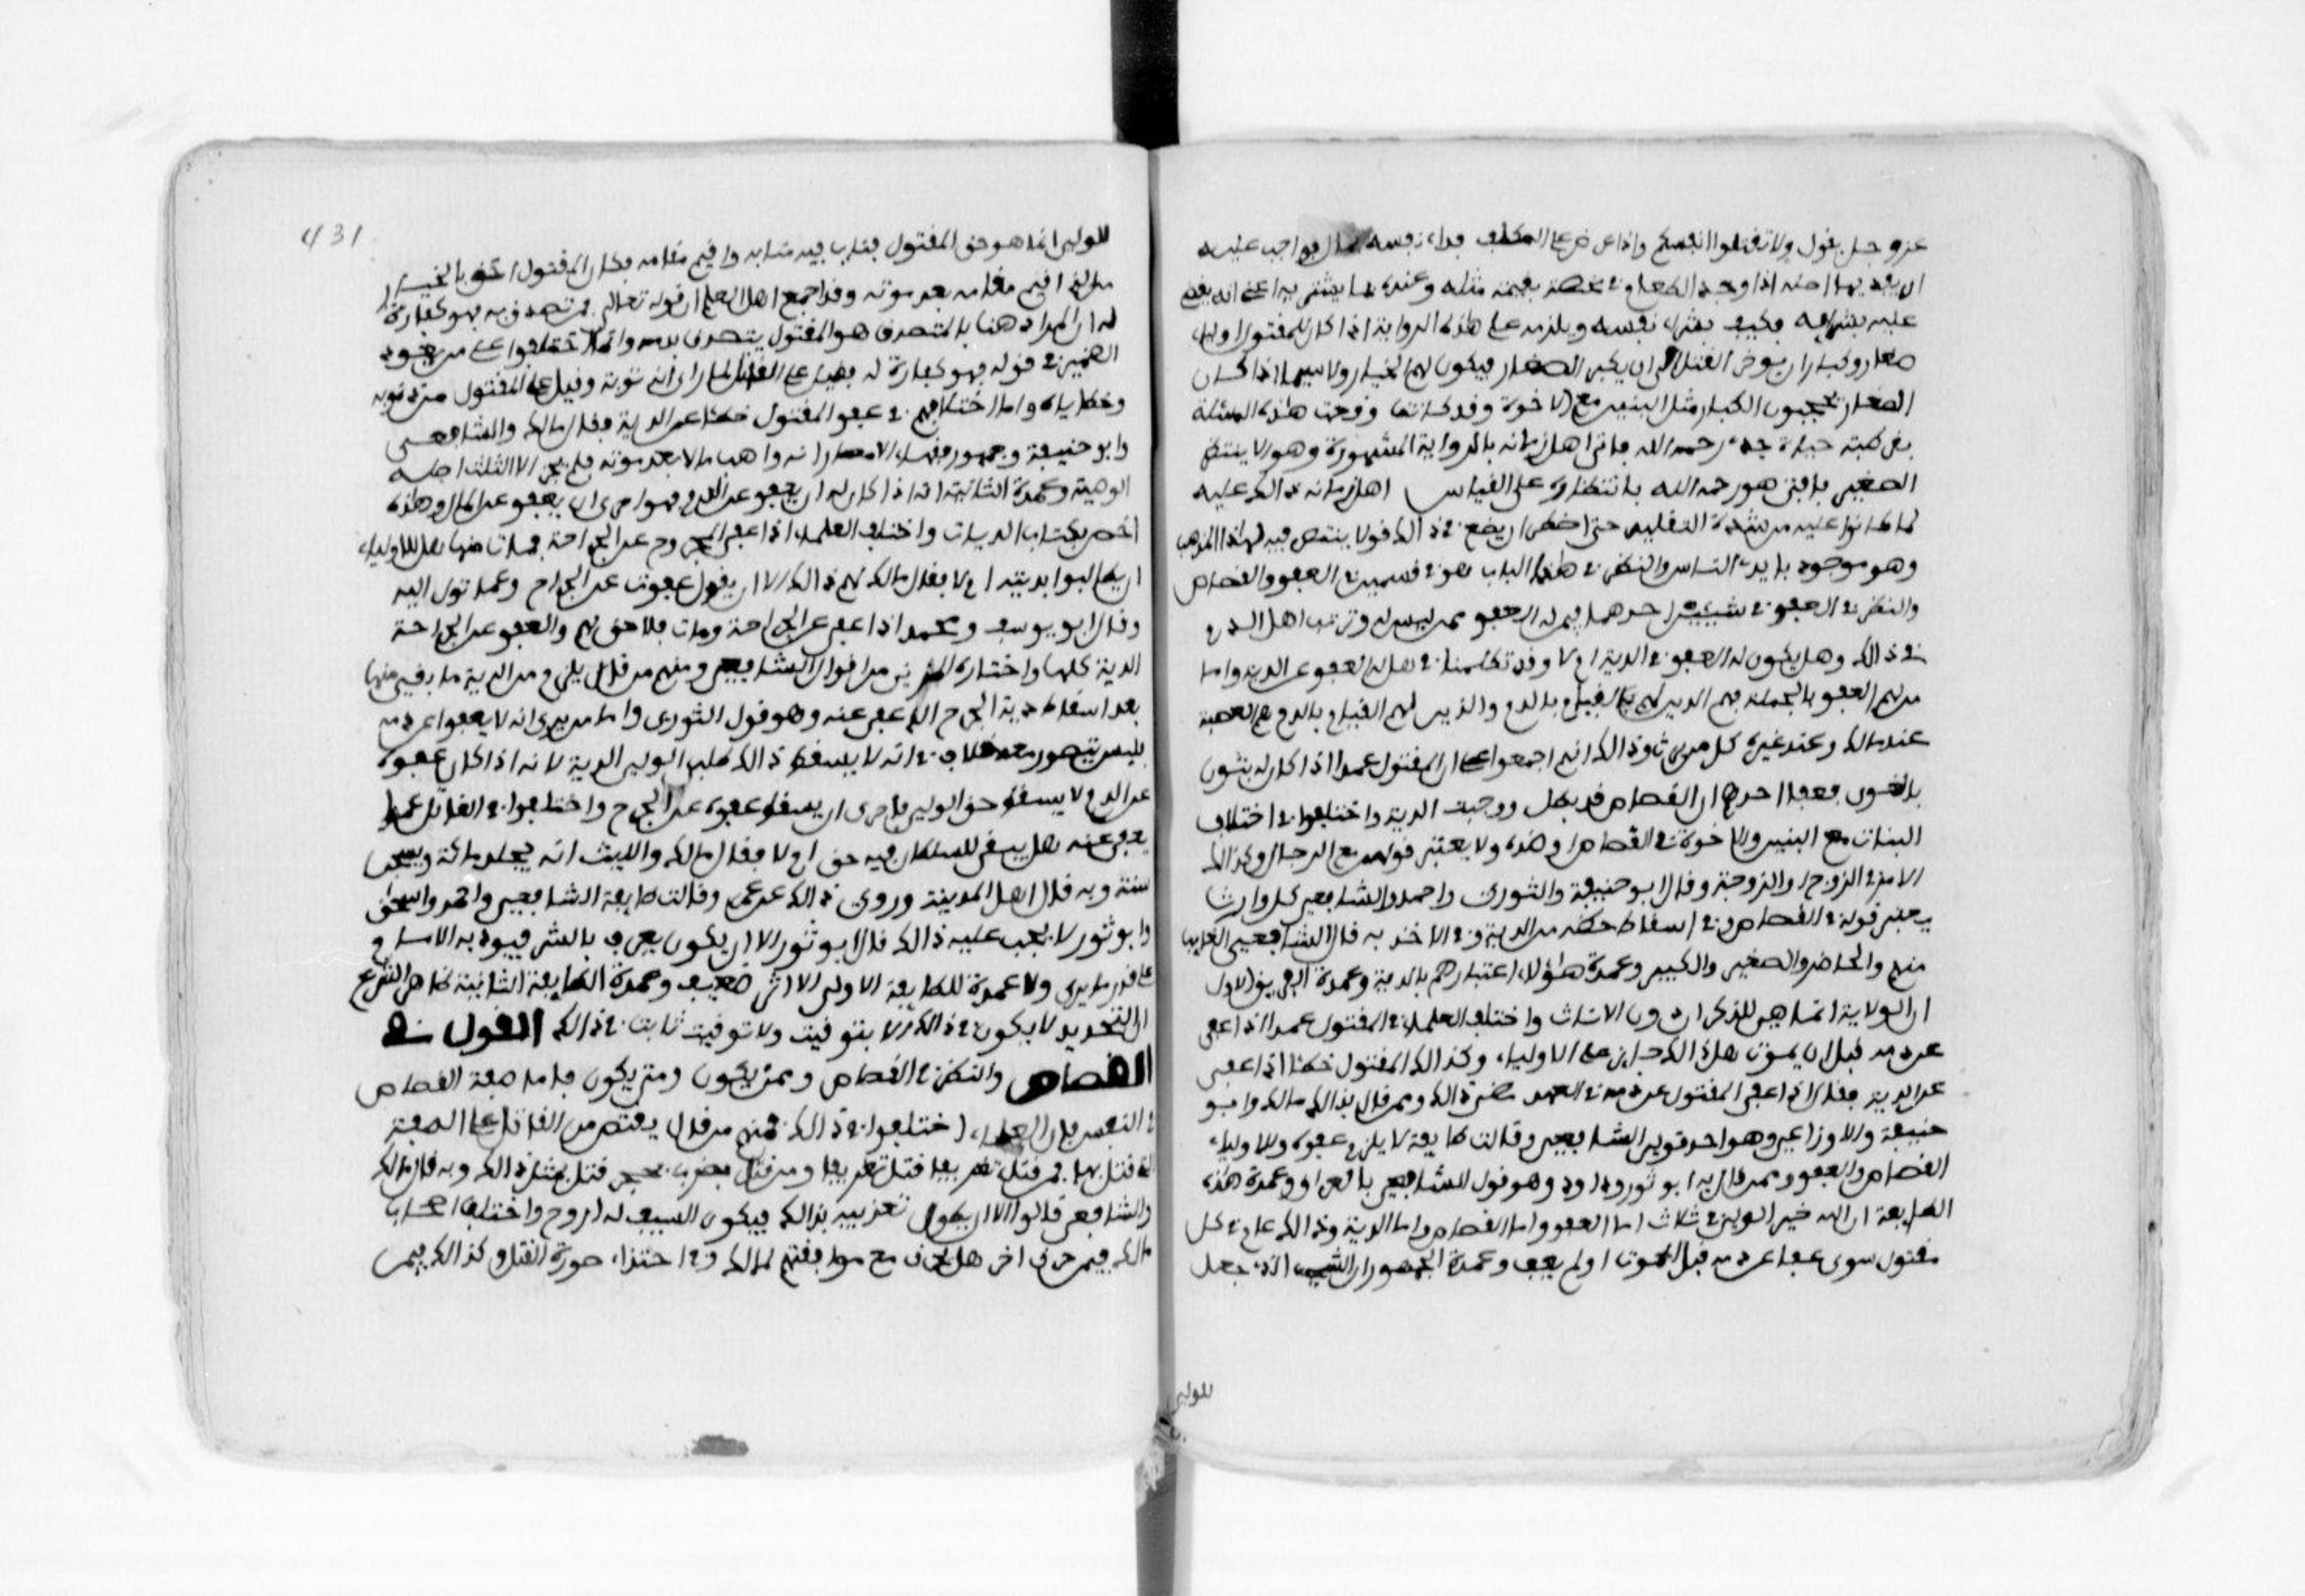 عز وجل يقول ولا تقتلوا انفسكم واذا عرض على المكلف فداء نفسه بمال فواجب عليه
ان يفديها اصله اذا وجد الطعام في مخمصة بقيمة مثله وعنده ما يشتريه اعني انه يقضى
عليه بشرائه فكيف بشراء نفسه ويلزم على هذه الرواية اذا كان للمقتول اولياء
صغار وكبار ان يوخر القتل الى ان يكبر الصغار فيكون لهم الخيار ولا سيما اذا كان
الصغار يحجبون الكبار مثل البنين مع الاخوة وقد كانت وقعت هذه المسئلة
بقرطبة حياة جدي رحمه الله فافتى اهل زمانه بالرواية المشهورة وهو الا ينتظر
الصغير فافتى هو رحمه الله بانتظاره على القياس اهل زمانه ذالك عليه
لما كانوا عليه من شدة التقليد حتى اضطر ان يضع في ذالك قولا ينتصر فيه لهذا المذهب
وهو موجود بايدي الناس والنظر في هذا الباب هو في قسمين في العفو والقصاص
والنظر في العفو في شيئين احدهما فيمن له العفو ممن ليس له وترتيب اهل الدم
في ذالك وهل يكون له العفو في الدية ام لا وقد تكلمنا في هل له العفو عن الدية واما
من لهم العفو بالجملة فهم الذين لهم القيام بالدم والذين لهم القيام بالدم هم العصبة
عند مالك وعند غيره كل من يرث وذالك انهم اجمعوا على ان المقتول عمدا اذا كان له بنون
بالغون فعفا احدهم ان القصاص قد بطل ووجبت الدية واختلفوا في اختلاف
البنات مع البنين والاخوة في القصاص او ضده ولا يعتبر قولهن مع الرجال وكذالك
الامر في الزوج والزوجة وقال ابو حنيفة والثوري واحمد والشافعي كل وارث
يعتبر قوله في القصاص وفي اسقاط حظه من الدية وفي الاخذ به قال الشافعي الغايب
منهم والحاضر والصغير والكبير وعمدة هؤلاء اعتبارهم بالدية وعمدة الفريق الاول
ان الولاية انما هي للذكران دون الاناث واختلف العلماء في المقتول عمدا اذا عفى
عن دمه قبل ان يموت هل ذالك جايز على الاولياء وكذالك المقتول خطئا اذا عفى
عن الدية فقال اذا عفى المقتول عن دمه في العمد مضى ذالك وممن قال بذالك مالك وابو
حنيفة والاوزاعي وهو احد قولي الشافعي وقالت طايفة لا يلزم عفوه وللاولياء
القصاص والعفو وممن قال به ابو ثور وداود وهو قول للشافعي بالعراق وعمدة هذه
الطايفة ان الله خير الولي في ثلاث اما العفو واما القصاص واما الدية وذالك عام في كل
مقتول سوى عفا عن دمه قبل الموت او لم يعف وعمدة الجمهور ان الشيء الذي جعل
للولي
431
للولي انما هو حق المقتول فناب فيه منابه واقيم مقامه فكان المقتول احق بالخيار
من الذي اقيم مقامه بعد موته وقد اجمع اهل العلم ان قوله تعالى فمن تصدق به فهو كفارة
له ان المراد هنا بالمتصدق هو المقتول يتصدق بدمه وانما اختلفوا على من يعود
الضمير في قوله فهو كفارة له فقيل على القاتل لمن رأى انه توبة وقيل على المقتول من ذنوبه
وخطاياه واما اختلافهم في عفو المقتول خطئا عن الدية فقال مالك والشافعي
وابو حنيفة وجمهور فقهاء الامصار انه واهب مالا بعد موته فلم يجز الا الثلث اصله
الوصية وعمدة الثانية انه اذا كان له ان يعفو عن الدم فهو احرى ان يعفو عن المال وهذه
اخص بكتاب الديات واختلف العلماء اذا عفى المجروح عن الجراحة فمات منها هل للاولياء
ان يطالبوا بديته ام لا فقال مالك لهم ذالك الا ان يقول عفوت عن الجراح وعما تؤل اليه
وقال ابو يوسف ومحمد اذا عفى عن الجراحة ومات فلا حق لهم والعفو عن الجراحة
الدية كلها واختاره المزني من اقوال الشافعي ومنهم من قال يلزم من الدية ما بقي منها
بعد اسقاط دية الجرح الذي عفى عنه وهو قول الثوري واما من يرى انه لا يعفوا عن دم
فليس يتصور معه خلاف في انه لا يسقط ذالك طلب الولي الدية لانه اذا كان عفوه
عن الدم لا يسقط حق الولي فاحرى ان يسقط عفوه عن الجرح واختلفوا في القاتل عمدا
يعفى عنه هل يبقى للسلطان فيه حق ام لا فقال مالك والليث انه يجلد مائة ويسجن
سنة وبه قال اهل المدينة وروى ذالك عن عمر وقالت طايفة الشافعي واحمد واسحق
وابو ثور لا يجب عليه ذالك قال ابو ثور الا ان يكون يعرف بالشر فيودبه الامام
على قدر ما يرى ولا عمدة للطايفة الاولى الا اثر ضعيف وعمدة الطايفة الثانية ظاهر الشرع
ان التحديد لا يكون في ذالك الا بتوقيف ولا توقيف ثابت في ذالك القول في
القصاص والنظر في القصاص وممن يكون ومتى يكون فاما صفة القصاص
في النفس فان العلماء اختلفوا في ذالك فمنهم من قال يقتص من القاتل على الصفة
التي قتل بها فمن قتل تغريقا قتل تغريقا ومن قتل بضرب بحجر قتل بمثل ذالك وبه قال مالك
والشافعي قالوا الا ان يطول تعذيبه بذالك فيكون السيف له اروح واختلف اصحاب
مالك فيمن حرق اخر هل يحرق مع موافقتهم لمالك في احتذاء صورة القتل وكذالك فيمن